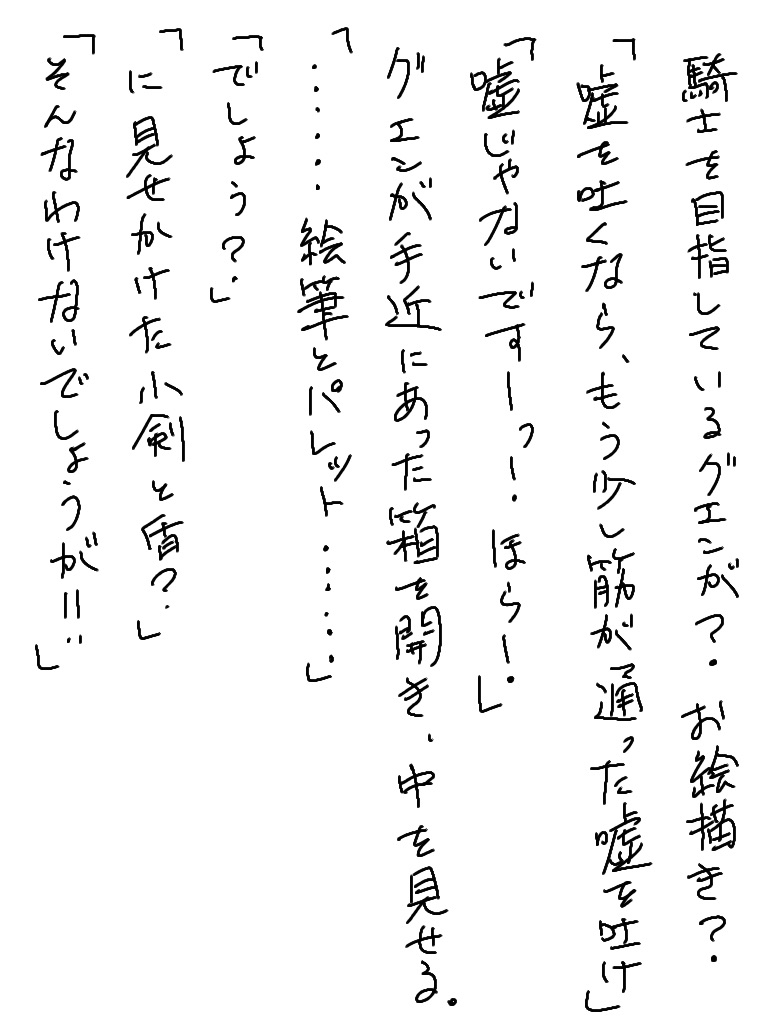 騎士を目指しているグエンが？お絵描き？
「嘘を吐くなら、もう少し筋が通った嘘を吐け」
「嘘じゃないですーっ！ほら！」
グエンが手近にあった箱を開き、中を見せる。
「……絵筆とパレット……」
「でしょう？」
「に見せかけた小剣と盾？」
「そんなわけないでしょうが！！」